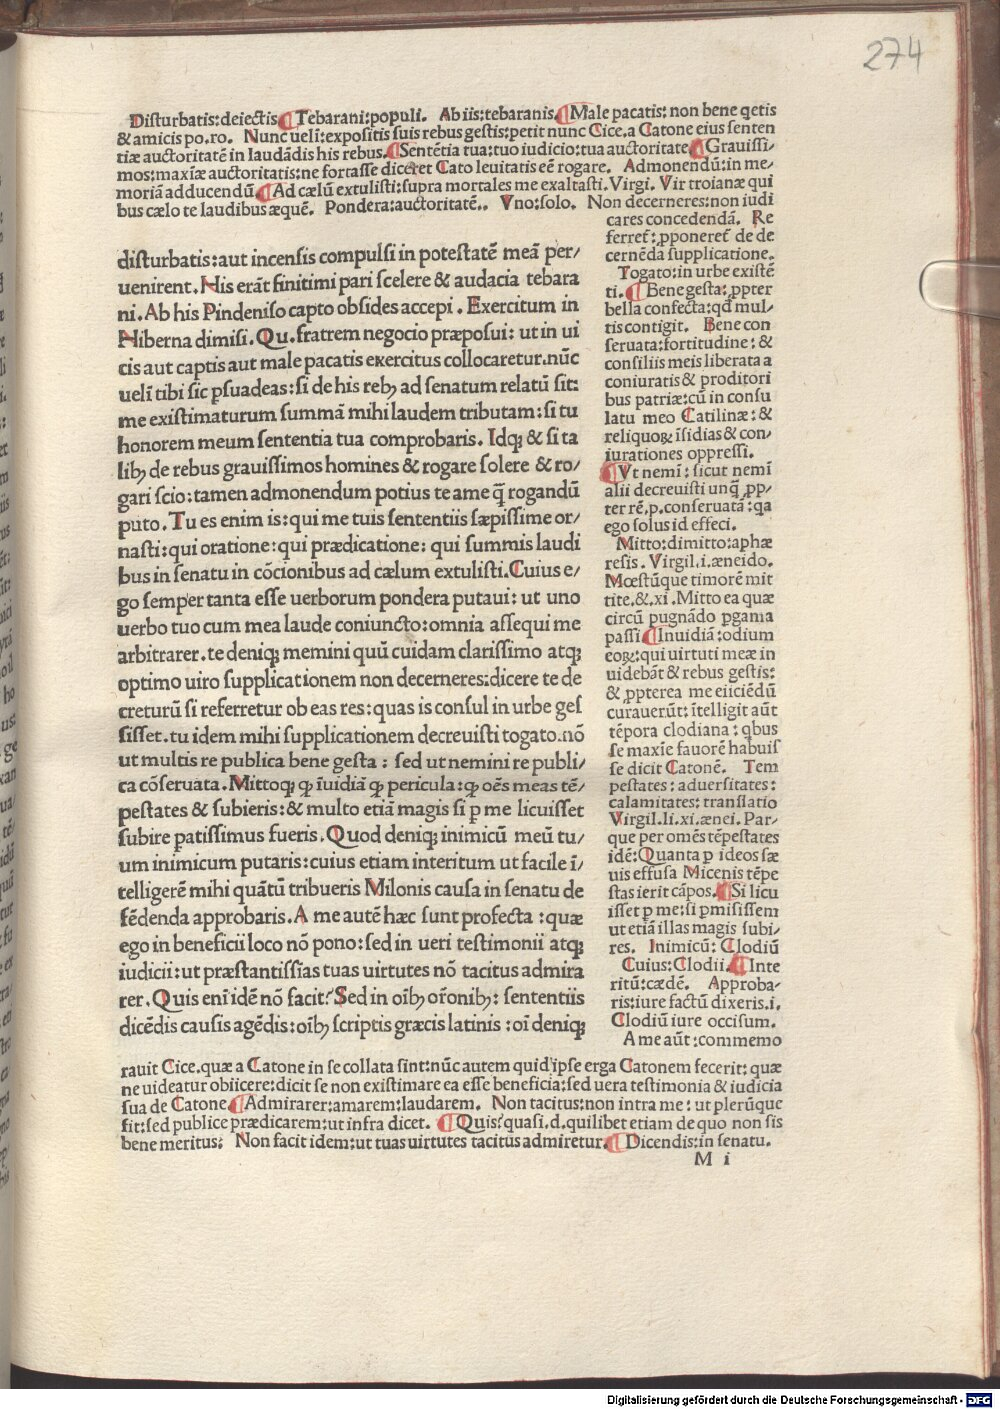 274
Disturbatis:deiectis ¶Tebarani:populi. Ab iis:tebaranis. ¶Male pacatis: non bene qetis
& amicis po.ro. Nunc ueli: expositis suis rebus gestis: petit nunc Cice. a Catone eius senten
tiæ auctoritatē in laudādis his rebus. ¶Sentētia tua: tuo iudicio: tua auctoritate ¶Grauissi/
mos: maxiæ auctoritatis: ne fortasse diceret Cato leuitatis eē rogare. Admonendū: in me/
moriā adducendū ¶Ad cælū extulisti: supra mortales me exaltasti. Virgi. Vir troianæ qui
bus cælo te laudibus æquē. Pondera: auctoritatē.. Vno: solo. Non decerneres: non iudi
cares concedendā. Re
ferret̄: ꝓponeret̄ de de
cernēda supplicatione.
Togato: in urbe existē
ti. ¶Bene gesta: ꝓpter
bella confecta: qd̄ mul/
tis contigit. Bene con
seruata: fortitudine: &
consiliis meis liberata a
coniuratis & proditori
bus patriæ: cū in consu
latu meo Catilinæ: &
reliquoꝝ īsidias & con/
iurationes oppressi.
¶Vt nemī: sicut nemī
alii decreuisti unq̄ ꝓp/
ter rē.p. conseruatā: qa
ego solus id effeci.
Mitto: dimitto: aphæ
resis. Virgil.i. æneido.
Mœstūque timorē mit
tite. &.xi. Mitto ea quæ
circū pugnādo pgama
passi ¶Inuidiā: odium
eoꝝ: qui uirtuti meæ in
uidebāt & rebus gestis:
& ꝓpterea me eiiciēdū
curauerūt: ītelligit aūt
tēpora clodiana: qbus
se maxie fauorē habuis
se dicit Catonē. Tem
pestates: aduersitates:
calamitates: translatio
Virgil. li. xi. ænei. Par/
que per omēs tēpestates
idē: Quanta ꝑ ideos sæ
uis effusa Micenis tēpe
stas ierit cāpos. ¶Si licu
isset ꝑ me: si pmisissem
ut etiā illas magis subi/
res. Inimicū: Clodiū
Cuius: Clodii. ¶Inte
ritū: cædē. Approba/
ris: iure factū dixeris.i.
Clodiū iure occisum.
A me aūt: commemo
disturbatis: aut incensis compulsi in potestatē meā per/
uenirent. His erāt finitimi pari scelere & audacia tebara
ni. Ab his Pindeniso capto obsides accepi. Exercitum in
Hiberna dimisi. Qu. fratrem negocio præposui: ut in ui
cis aut captis aut male pacatis exercitus collocaretur. nūc
uelī tibi sic ꝑsuadeas: si de his rebꝫ ad senatum relatū sit:
me existimaturum summā mihi laudem tributam: si tu
honorem meum sententia tua comprobaris. Idqꝫ & si ta
libꝫ de rebus grauissimos homines & rogare solere & ro/
gari scio: tamen admonendum potius te a me q̄ rogandū
puto. Tu es enim is: qui me tuis sententiis sæpissime or/
nasti: qui oratione: qui prædicatione: qui summis laudi
bus in senatu in cōcionibus ad cælum extulisti. Cuius e/
go semper tanta esse uerborum pondera putaui: ut uno
uerbo tuo cum mea laude coniuncto: omnia assequi me
arbitrarer. te deniqꝫ memini quū cuidam clarissimo atqꝫ
optimo uiro supplicationem non decerneres: dicere te de
creturū si referretur ob eas res: quas is consul in urbe ges
sisset. tu idem mihi supplicationem decreuisti togato. nō
ut multis re publica bene gesta: sed ut nemini re publi/
ca cōseruata. Mittoqꝫ qꝫ īuidiā qꝫ pericula: qꝫ oēs meas tē/
pestates & subieris: & multo etiā magis si ꝑ me licuisset
subire patissimus fueris. Quod deniqꝫ inimicū meū tu/
um inimicum putaris: cuius etiam interitum ut facile ī/
telligerē mihi quātū tribueris Milonis causa in senatu de
fēdenda approbaris. A me autē hæc sunt profecta: quæ
ego in beneficii loco nō pono: sed in ueri testimonii atqꝫ
iudicii: ut præstantissias tuas uirtutes nō tacitus admira
rer. Quis enī idē nō facit? Sed in oībꝫ or̄onibꝫ: sententiis
dicēdis causis agēdis: oībꝫ scriptis græcis latinis: oī deniqꝫ
rauit Cice. quæ a Catone in se collata sint: nūc autem quid ipse erga Catonem fecerit: quæ
ne uideatur obiicere: dicit se non existimare ea esse beneficia: sed uera testimonia & iudicia
sua de Catone ¶Admirarer: amarem: laudarem. Non tacitus: non intra me: ut plerūque
fit: sed publice prædicarem: ut infra dicet. ¶Quis? quasi.d. quilibet etiam de quo non sis
bene meritus: Non facit idem: ut tuas uirtutes tacitus admiretur. ¶Dicendis: in senatu.
M i
Digitalisierung gefördert durch die Deutsche Forschungsgemeinschaft - DFG